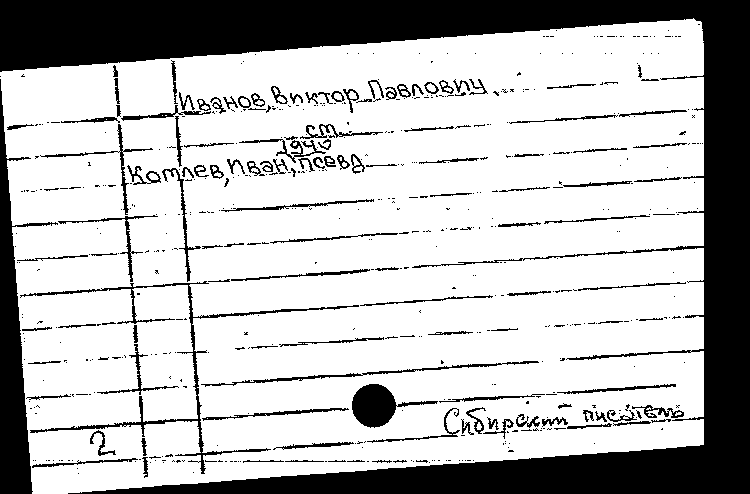 Иванов, Виктор Павлович
см.:
Котлев, Иван, псевд.
2
Сибирский писатель